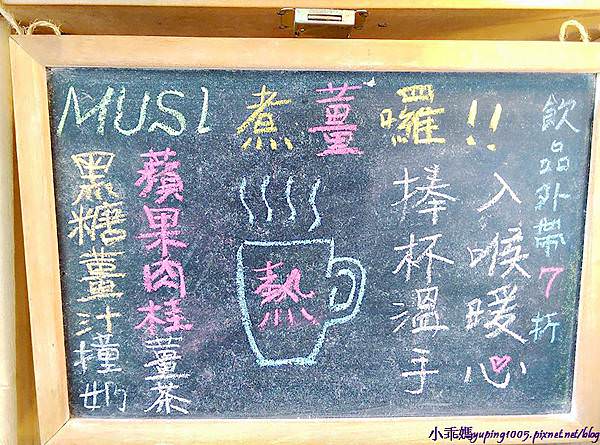 MUSI 煮薑囉!!
飲品外帶7折
入喉暖心
捧杯溫手
熱
蘋果肉桂薑茶
黑糖薑汁撞奶
小乖媽yuping1005.pixnet.net/blog